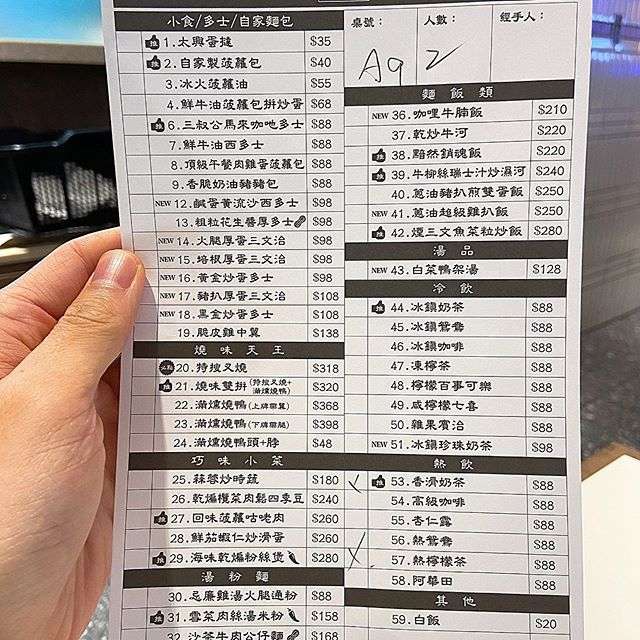 小食/多士/自家麵包
推 1.太興蛋撻 $35
推 2.自家製菠蘿包 $40
3.冰火菠蘿油 $55
4.鮮牛油菠蘿包拼炒蛋 $68
推 6.三叔公馬來咖吔多士 $88
7.鮮牛油西多士 $88
8.頂級午餐肉雞蛋菠蘿包 $88
9.香脆奶油豬豬包 $88
NEW 12.鹹蛋黃流沙西多士 $98
13.粗粒花生醬厚多士 $98
NEW 14.火腿厚蛋三文治 $98
NEW 15.培根厚蛋三文治 $98
NEW 16.黃金炒蛋多士 $98
NEW 17.豬扒厚蛋三文治 $108
NEW 18.黑金炒蛋多士 $108
19.脆皮雞中翼 $138
燒味天王
20.特搜叉燒 $318
推 21.燒味雙拼(特搜叉燒+滿爐燒鴨) $320
22.滿爐燒鴨(上牌帶翼) $368
23.滿爐燒鴨(下牌帶腿) $398
24.滿爐燒鴨頭+脖 $48
巧味小菜
25.蒜蓉炒時蔬 $180
26.乾煸欖菜肉鬆四季豆 $240
推 27.回味菠蘿咕咾肉 $260
28.鮮茄蝦仁炒滑蛋 $260
推 29.海味乾煸粉絲煲 $280
湯粉麵
30.忌廉雞湯火腿通粉 $88
推 31.雪菜肉絲湯米粉 $158
32.沙茶牛肉公仔麵 $168
桌號: A9
人數: 2
經手人:
麵飯類
NEW 36.咖哩牛腩飯 $210
37.乾炒牛河 $220
推 38.黯然銷魂飯 $220
推 39.牛柳絲瑞士汁炒濕河 $240
40.蔥油豬扒煎雙蛋飯 $250
NEW 41.蔥油超級雞扒飯 $250
推 42.煙三文魚菜粒炒飯 $280
湯品
NEW 43.白菜鴨架湯 $128
冷飲
推 44.冰鎮奶茶 $88
45.冰鎮鴛鴦 $88
46.冰鎮咖啡 $88
47.凍檸茶 $88
48.檸檬百事可樂 $88
49.咸檸檬七喜 $88
50.雜果賓治 $88
NEW 51.冰鎮珍珠奶茶 $98
熱飲
推 53.香滑奶茶 $88
54.高級咖啡 $88
55.杏仁露 $88
56.熱鴛鴦 $88
57.熱檸檬茶 $88
58.阿華田 $88
其他
59.白飯 $20